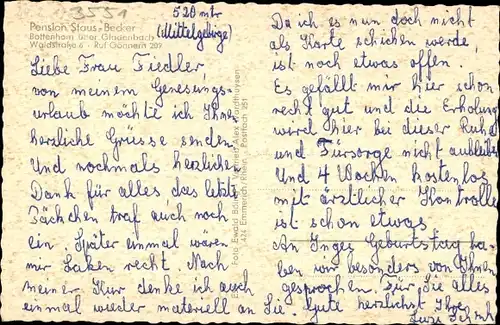 3551
520 mtr
(Mittelgebirge)
Pension Staus-Becker
Bottenhorn über Gladenbach
Waldstraße 6 · Ruf Gönnern 209
Liebe Frau Fiedler,
von meinem Genesungs-
urlaub möchte ich Ihnen
herzliche Grüsse senden
und nochmals herzlichen
Dank für alles das letzte
Päckchen traf auch noch
ein. Später einmal wären
mir Laken recht. Nach
meiner Kur denke ich auch
einmal wieder materiell an Sie.
Da ich es nun doch nicht
als Karte schicken werde
ist noch etwas offen.
Es gefällt mir hier schon
recht gut und die Erholung
wird hier bei dieser Ruhe
und Fürsorge nicht ausbleiben
Und 4 Wochen kostenlos
mit ärztlicher Kontrolle
ist schon etwas.
An Inges Geburtstag ha-
ben wir besonders von Ihnen
gesprochen. Für Sie alles
Gute herzlichst Ihre
Foto Ewald
424 Emmerich/Rhein, Postfach 251